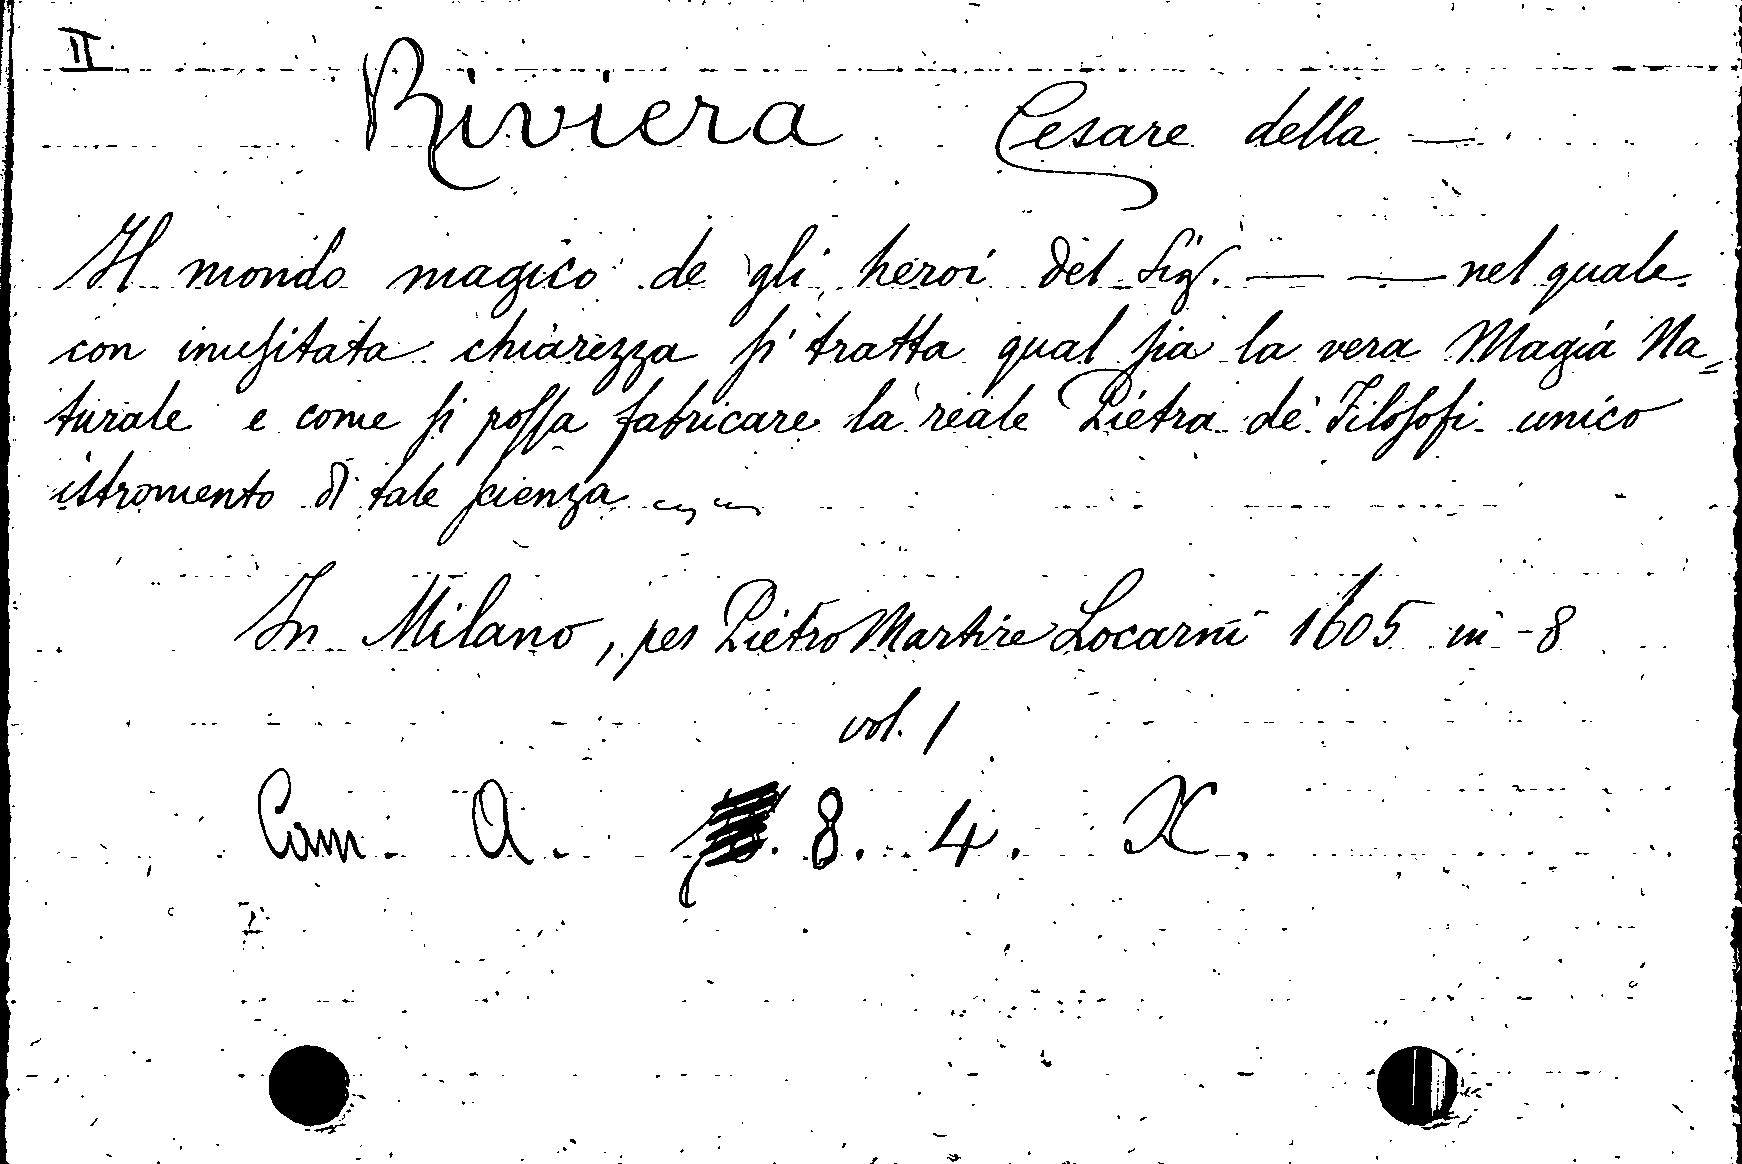 II
Riviera Cesare della —
Il mondo magico de gli heroi del Sig. — — nel quale
con inuſitata chiarezza ſi tratta qual ſia la vera Magia Na=
turale e come ſi poſſa fabricare la reale Pietra de' Filoſofi unico
istromento di tale ſcienza
In Milano, per Pietro Martire Locarni 1605 in - 8
vol. 1
Cam. A. 8. 4. X.